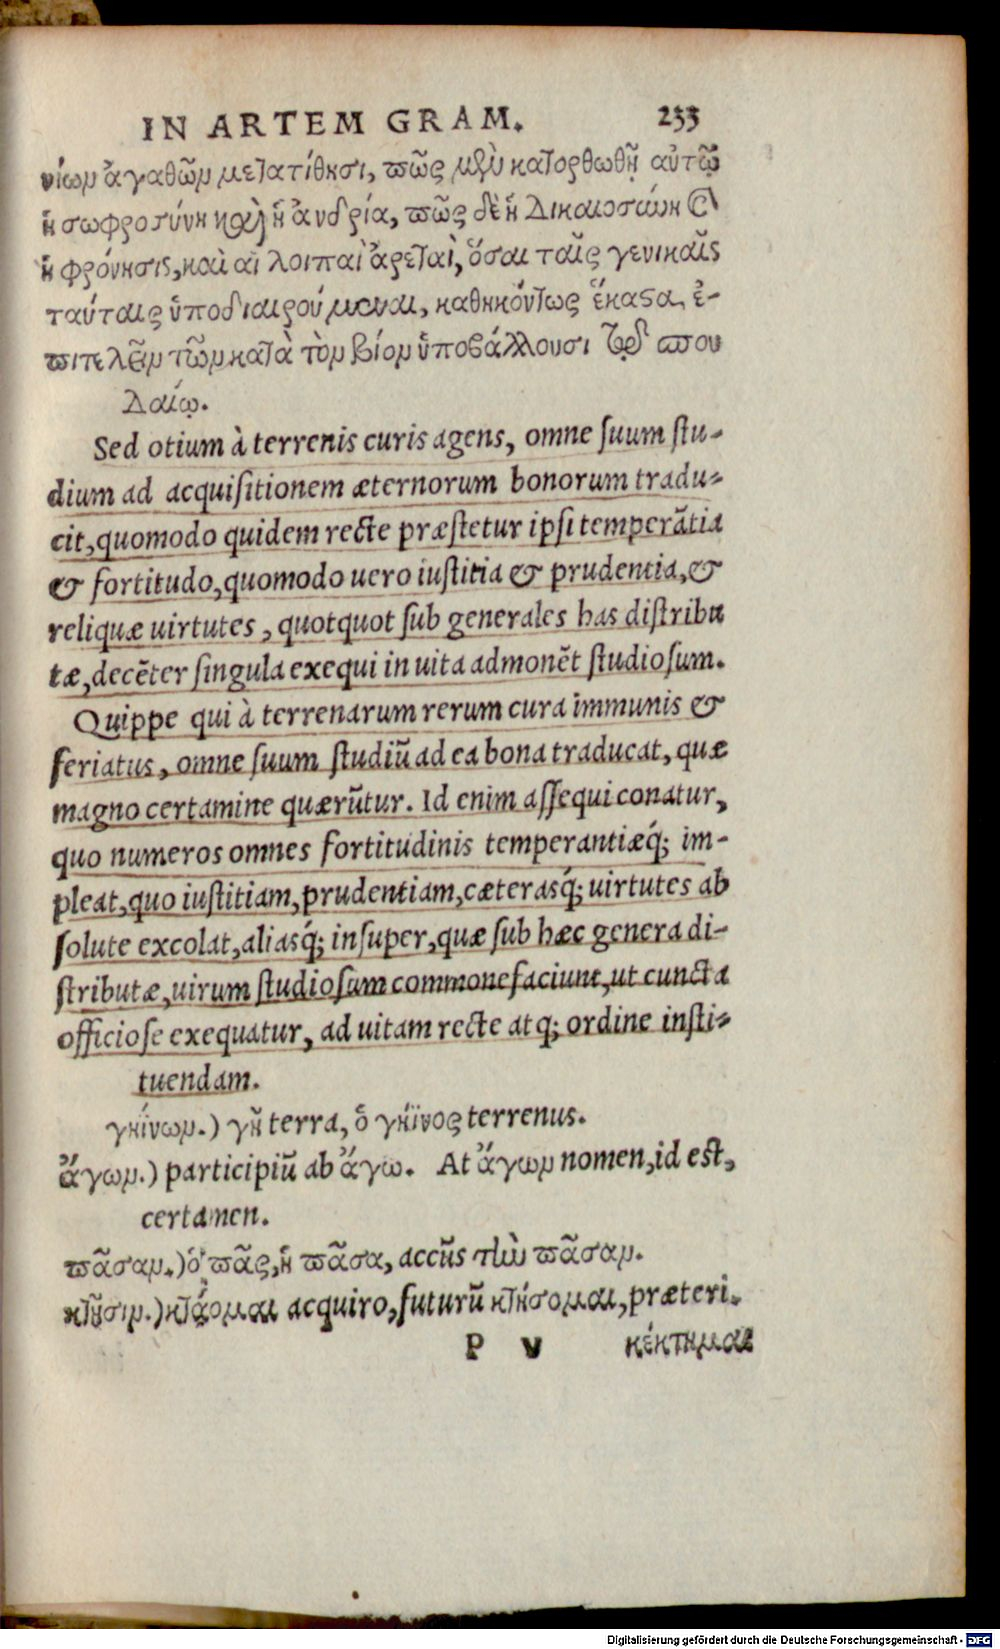 IN ARTEM GRAM. 233
νίων ἀγαθῶν μετατίθησι, πῶς μὲν κατορθωθῇ αὐτῷ
ἡ σωφροσύνη καὶ ἡ ἀνδρία, πῶς δὲ ἡ δικαιοσύνη καὶ
ἡ φρόνησις, καὶ αἱ λοιπαὶ ἀρεταὶ, ὅσαι ταῖς γενικαῖς
ταύταις ὑποδιαιρούμεναι, καθηκόντως ἕκαστα, ἐ-
πιτελεῖν τῶν κατὰ τὸν βίον ὑποβάλλουσι τῷ σπου
δαίῳ.
Sed otium à terrenis curis agens, omne suum stu-
dium ad acquisitionem æternorum bonorum tradu-
cit, quomodo quidem recte præstetur ipsi temperãtia
& fortitudo, quomodo uero iustitia & prudentia, &
reliquæ uirtutes, quotquot sub generales has distribu
tæ, decẽter singula exequi in uita admonẽt studiosum.
Quippe qui à terrenarum rerum cura immunis &
feriatus, omne suum studiũ ad ea bona traducat, quæ
magno certamine quærũtur. Id enim assequi conatur,
quo numeros omnes fortitudinis temperantiæq́; im-
pleat, quo iustitiam, prudentiam, cæterasq́; uirtutes ab
solute excolat, aliasq́; insuper, quæ sub hæc genera di-
stributæ, uirum studiosum commonefaciunt, ut cuncta
officiose exequatur, ad uitam recte atq; ordine insti-
tuendam.
γηΐνων.) γῆ terra, ὁ γήϊνος terrenus.
ἄγων.) participiũ ab ἄγω. At ἄγων nomen, id est,
certamen.
πᾶσαν.) ὁ πᾶς, ἡ πᾶσα, accũs τὴν πᾶσαν.
κτῆσιν.) κτάομαι acquiro, futurũ κτήσομαι, præteri.
P v κέκτημαι
Digitalisierung gefördert durch die Deutsche Forschungsgemeinschaft - DFG